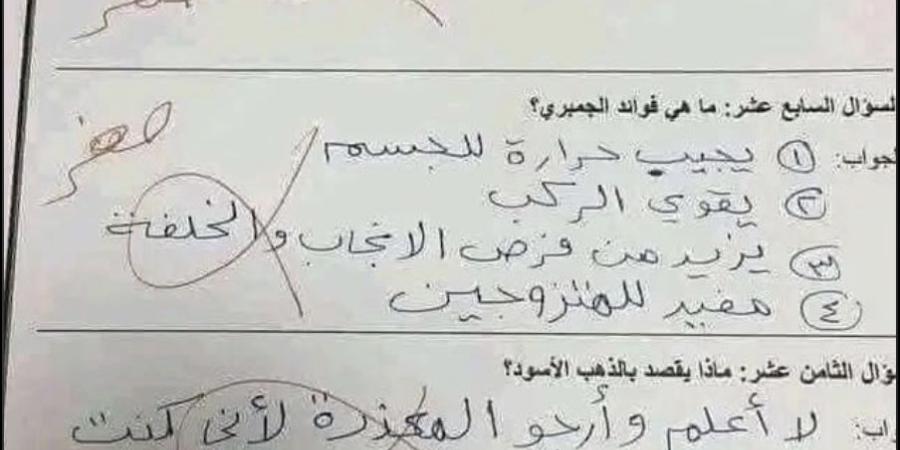 صفر
لسؤال السابع عشر: ما هي فوائد الجمبري؟
لجواب: ١ يجيب حرارة للجسم
٢ يقوي الركب
٣ يزيد من فرص الانجاب والخلفة
٤ مفيد للمتزوجين
صفر
ؤال الثامن عشر: ماذا يقصد بالذهب الأسود؟
واب: لا أعلم وأرجو المعذرة لأني كنت